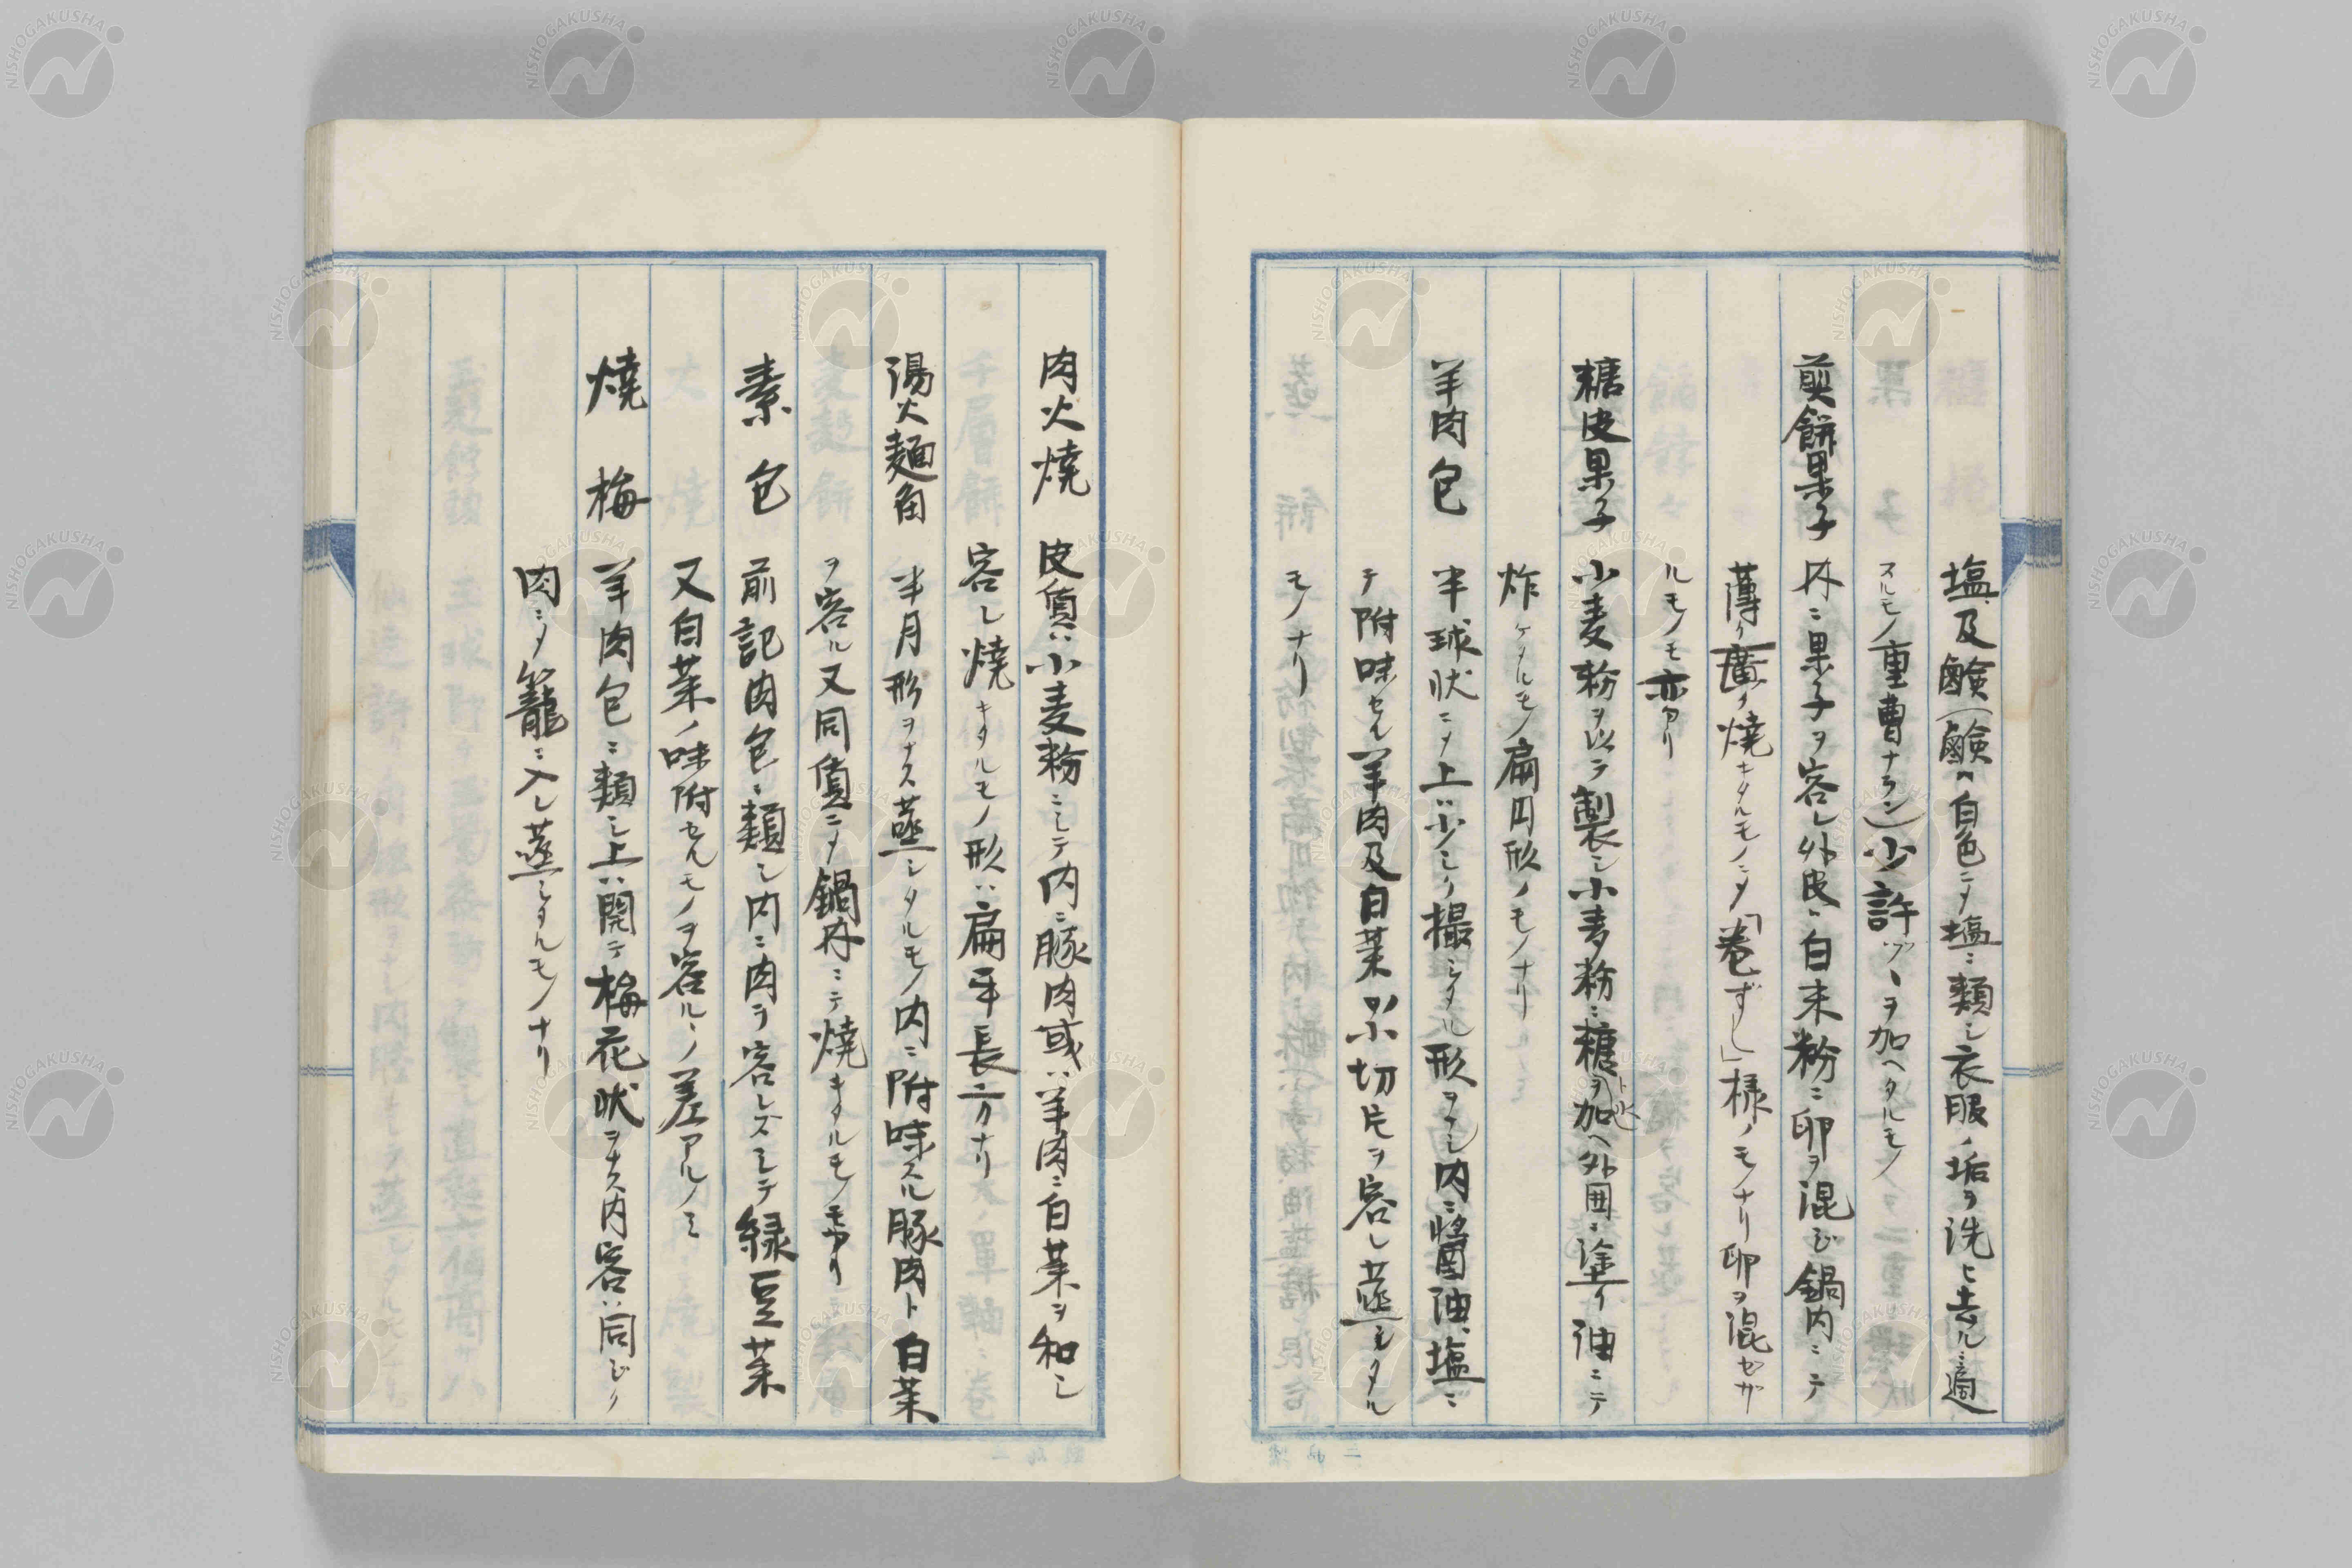 塩及鹸(鹸ハ白色ニシテ塩ニ類シ衣服ノ垢ヲ洗ヒ去ルニ適
スルモノ重曹ナラン)少許ヅヽヲ加ヘタルモノ
煎餅果子 内ニ果子ヲ容レ外皮ハ白末粉ニ卵ヲ混ジ鍋内ニテ
薄ク廣ク焼キタルモノニシテ「巻ずし」様ノモノナリ卵ヲ混ゼザ
ルモノモ亦アリ
糖皮果子 小麦粉ヲ以テ製シ小麦粉ニ糖ト水ヲ加ヘ外囲ニ塗リ油ニテ
炸ケタルモノ扁円形ノモノナリ
羊肉包 半球状ニシテ上ハ少シク撮ミタル形ヲナシ内ニ醤油、塩ニ
テ附味セル羊肉及白菜ノ小切片ヲ容レ蒸シタル
モノナリ
肉火燒 皮質ハ小麦粉ニシテ内ニ豚肉或ハ羊肉ニ白菜ヲ和シ
容レ燒キタルモノ形ハ扁平長方ナリ
湯火麺角 半月形ヲナス蒸シタルモノ内ニ附味スル豚肉ト白菜
ヲ容ル又同質ニシテ鍋内ニテ燒キタルモノモアリ
素包 前記肉包ニ類シ内ニ肉ヲ容レズシテ緑豆菜
又白菜ノ味附セルモノヲ容ルヽノ差アルノミ
燒梅 羊肉包ニ類シ上ハ開テ梅花状ヲナス内容ハ同ジク
肉ニシテ籠ニ入レ蒸シタルモノナリ
NISHOGAKUSHA